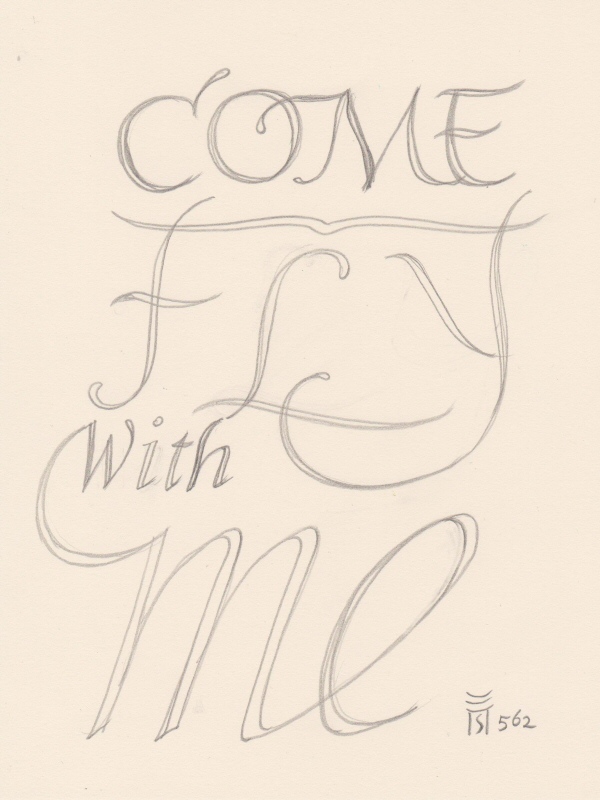 COME
FLY
With
me
562